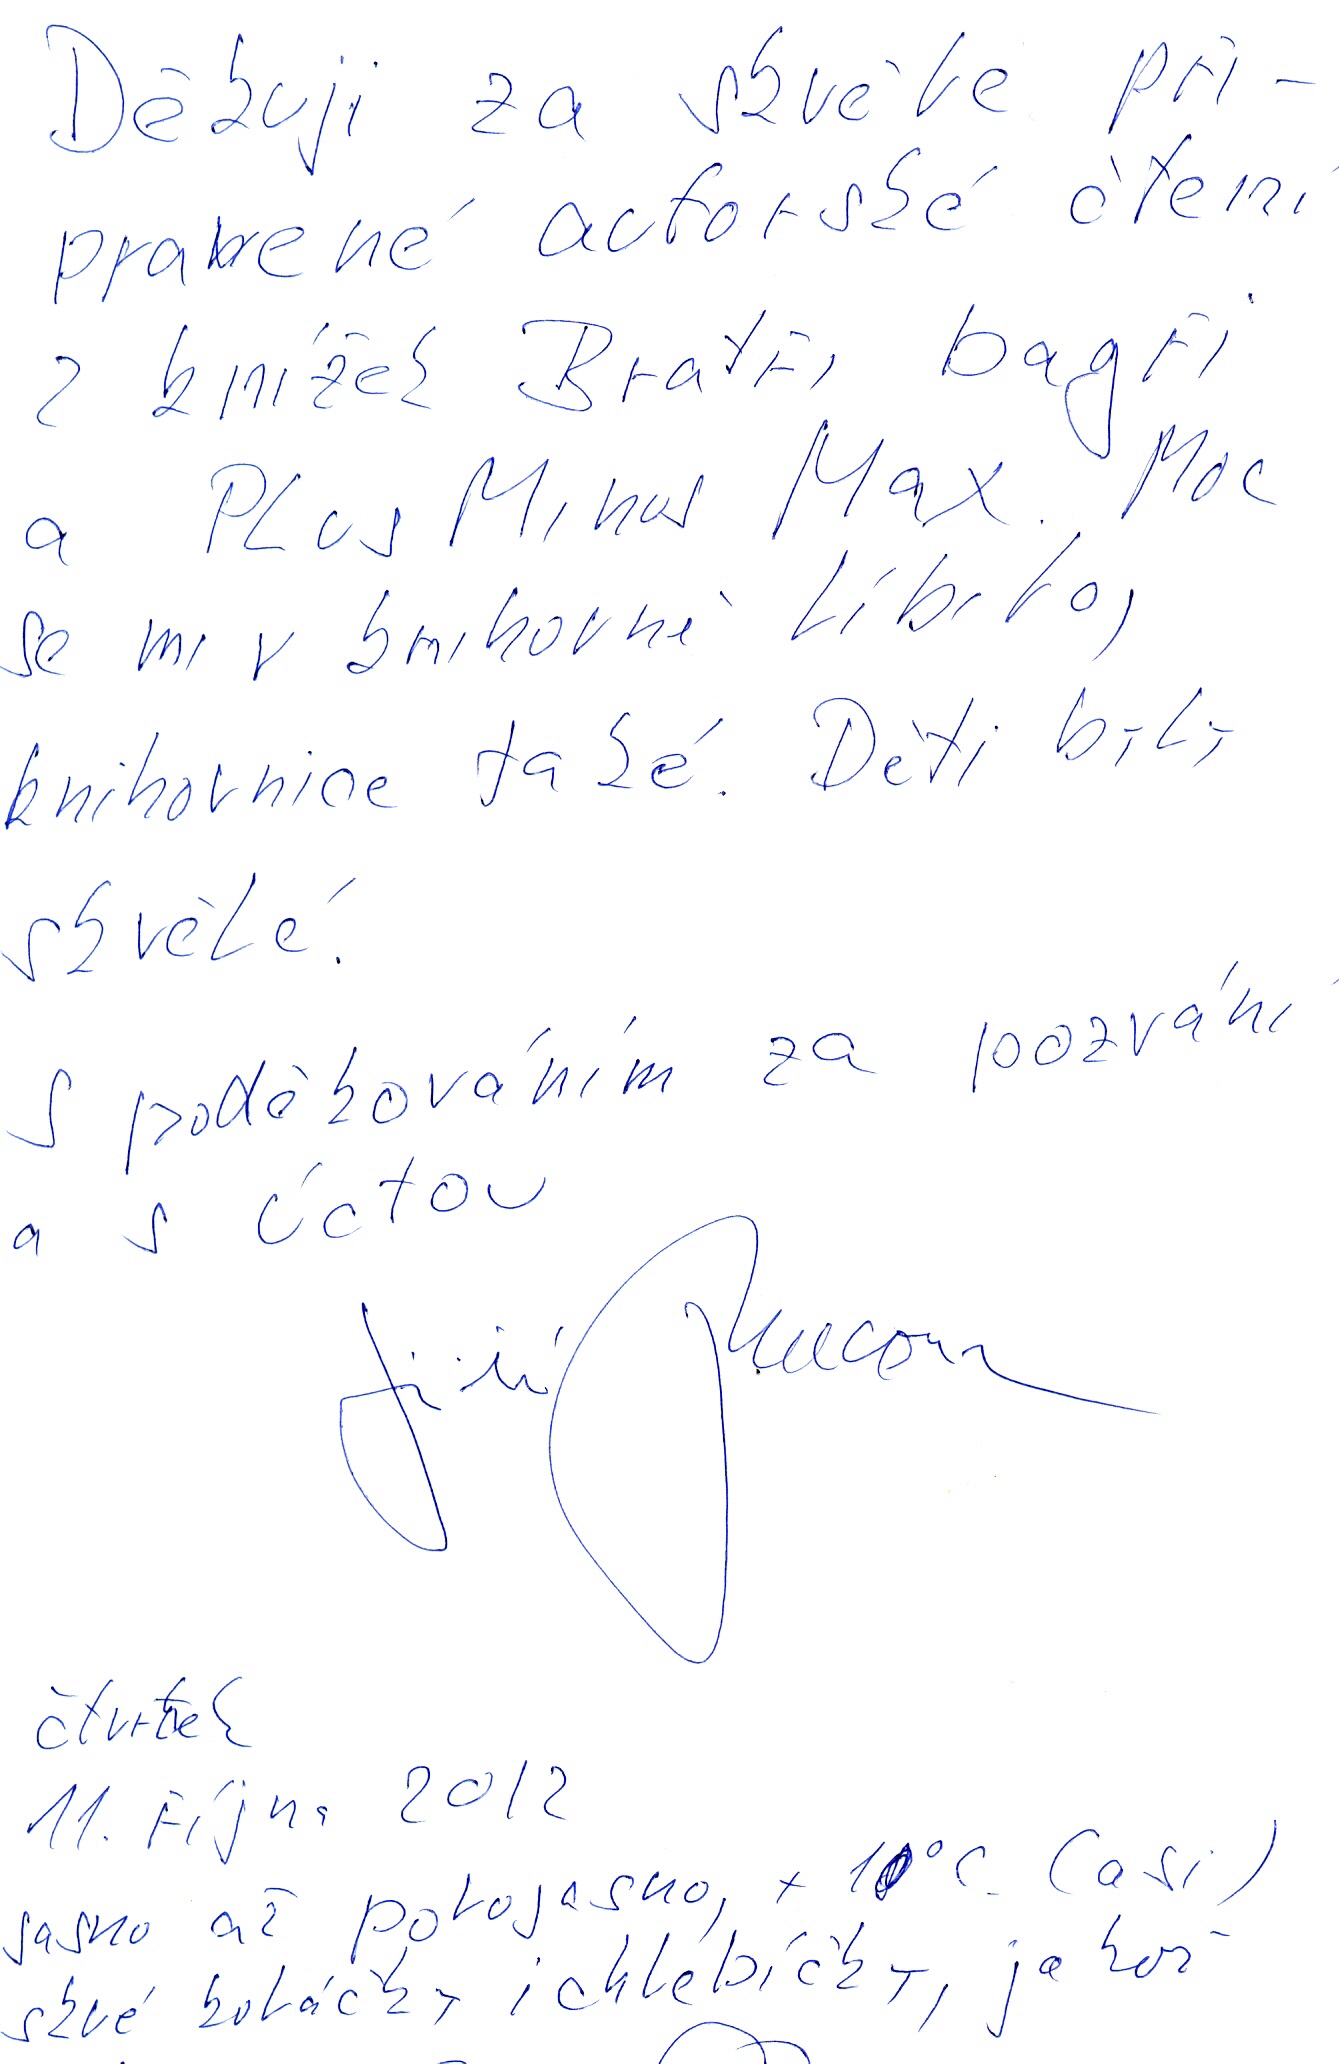 Děkuji za skvěle při-
pravené autorské čtení
z knížek Bratři bagři
a Plus Minus Max. Moc
se mi v knihovně líbilo,
knihovnice také. Děti byly
skvělé.
S poděkováním za pozvání
a s úctou
Jiří
čtvrtek
11. října 2012
jasno až polojasno, + 10°C. (asi)
skvé koláčky i chlebíčky, jakož